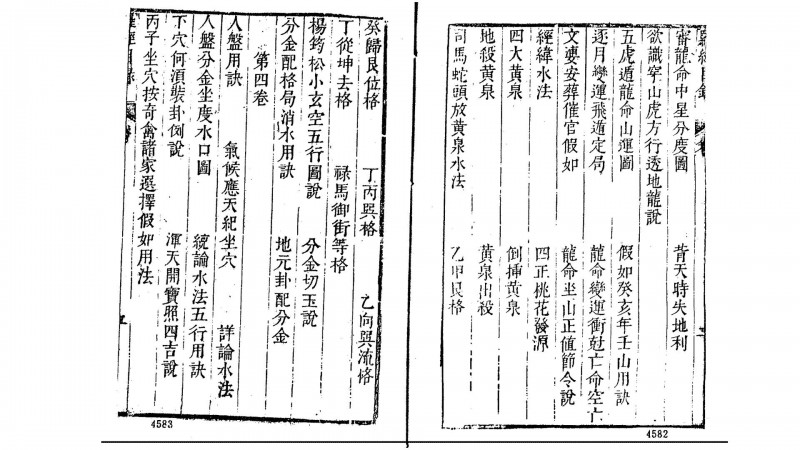 審龍命中星分度圖　背天時失地利
欲識穿山虎方行透地龍說
五虎遁龍命山運圖　假如癸亥年壬山用訣
逐月變運飛遁定局　龍命變運衝尅亡命空亡
文婁安葬催官假如　龍命坐山正值節令說
經緯水法　四正桃花發源
四大黃泉　倒挿黃泉
地殺黃泉　黃泉出殺
司馬蛇頭放黃泉水法　乙甲艮格
4582
癸歸艮位格　丁丙巽格　乙向巽流格
丁從坤去格　祿馬御街等格
楊筠松小玄空五行圖說　分金切玉說
分金配格局消水用訣　地元卦配分金
第四卷
人盤用訣　氣候應天紀坐穴　詳論水法
人盤分金坐度水口圖　統論水法五行用訣
下穴何須裝卦例說　渾天開寶照四吉說
丙子坐穴按奇禽諸家選擇假如用法
五
4583